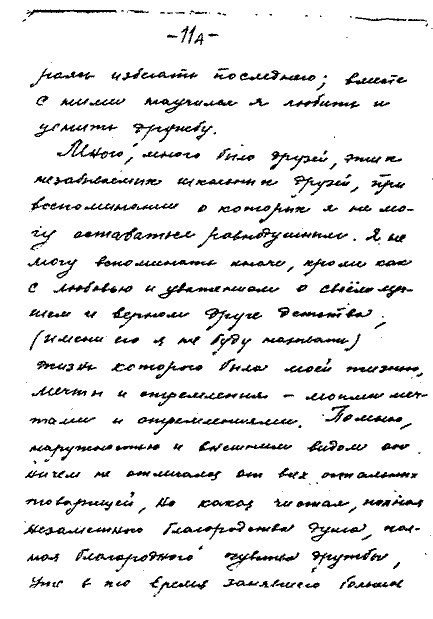 -11А-
раясь избегать последнего; вместе
с ними научился я любить и
ценить дружбу.
Много, много было друзей, этих
незабываемых школьных друзей, при
воспоминании о которых я не мо-
гу оставаться равнодушным. Я не
могу вспоминать иначе, кроме как
с любовью и уважением о своём луч-
шем и верном друге детства,
(имени его я не буду называть)
жизнь которого была моей жизнью,
мечты и стремления - моими меч-
тами и стремлениями. Помню,
наружностью и внешним видом он
ничем не отличался от всех остальных
товарищей, но какая чистая, полная
незаметного благородства душа, пол-
ная благородного чувства дружбы,
уже в то время занявшего больше